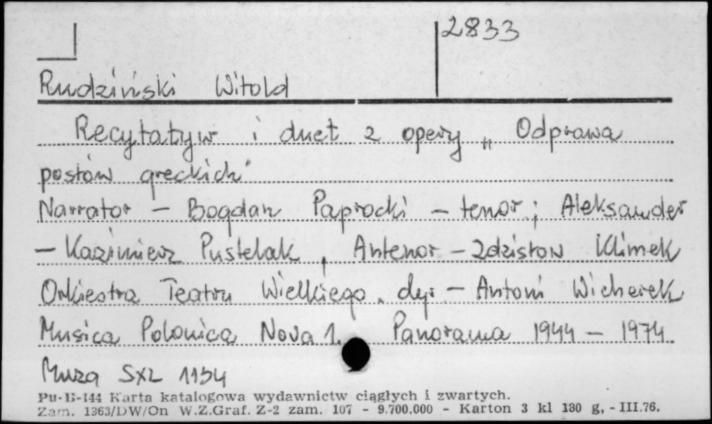 2833
Rudziński Witold
Recytatyw i duet z opery „Odprawa
posłów greckich"
Narrator – Bogdan Paprocki – tenor; Aleksander
– Kazimierz Pustelak, Antenor – Zdzisław Klimek
Orkiestra Teatru Wielkiego. dyr – Antoni Wicherek
Musica Polonica Nova 1. Panorama 1944 – 1974
Muza SXL 1154
Pu-B-144 Karta katalogowa wydawnictw ciągłych i zwartych.
Zam. 1363/DW/On W.Z.Graf. Z-2 zam. 107 - 9.700.000 - Karton 3 kl 180 g. - III.76.